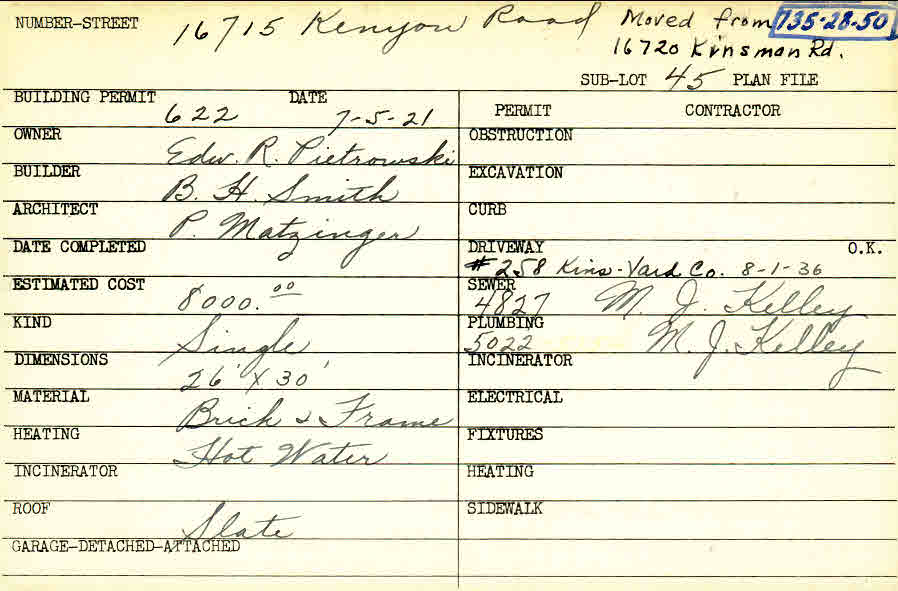 NUMBER-STREET 16715 Kenyon Road Moved from 735-28-50
16720 Kinsman Rd.
SUB-LOT 45 PLAN FILE
BUILDING PERMIT 622 DATE 7-5-21
PERMIT CONTRACTOR
OWNER Edw. R. Pietrowski
OBSTRUCTION
BUILDER B. H. Smith
EXCAVATION
ARCHITECT P. Matzinger
CURB
DATE COMPLETED
DRIVEWAY O.K.
# 258 Kins-Vard Co. 8-1-36
ESTIMATED COST 8000.00
SEWER 4827 M. J. Kelley
KIND Single
PLUMBING 5022 M. J. Kelley
DIMENSIONS 26' X 30'
INCINERATOR
MATERIAL Brick & Frame
ELECTRICAL
HEATING Hot Water
FIXTURES
INCINERATOR
HEATING
ROOF Slate
SIDEWALK
GARAGE-DETACHED-ATTACHED